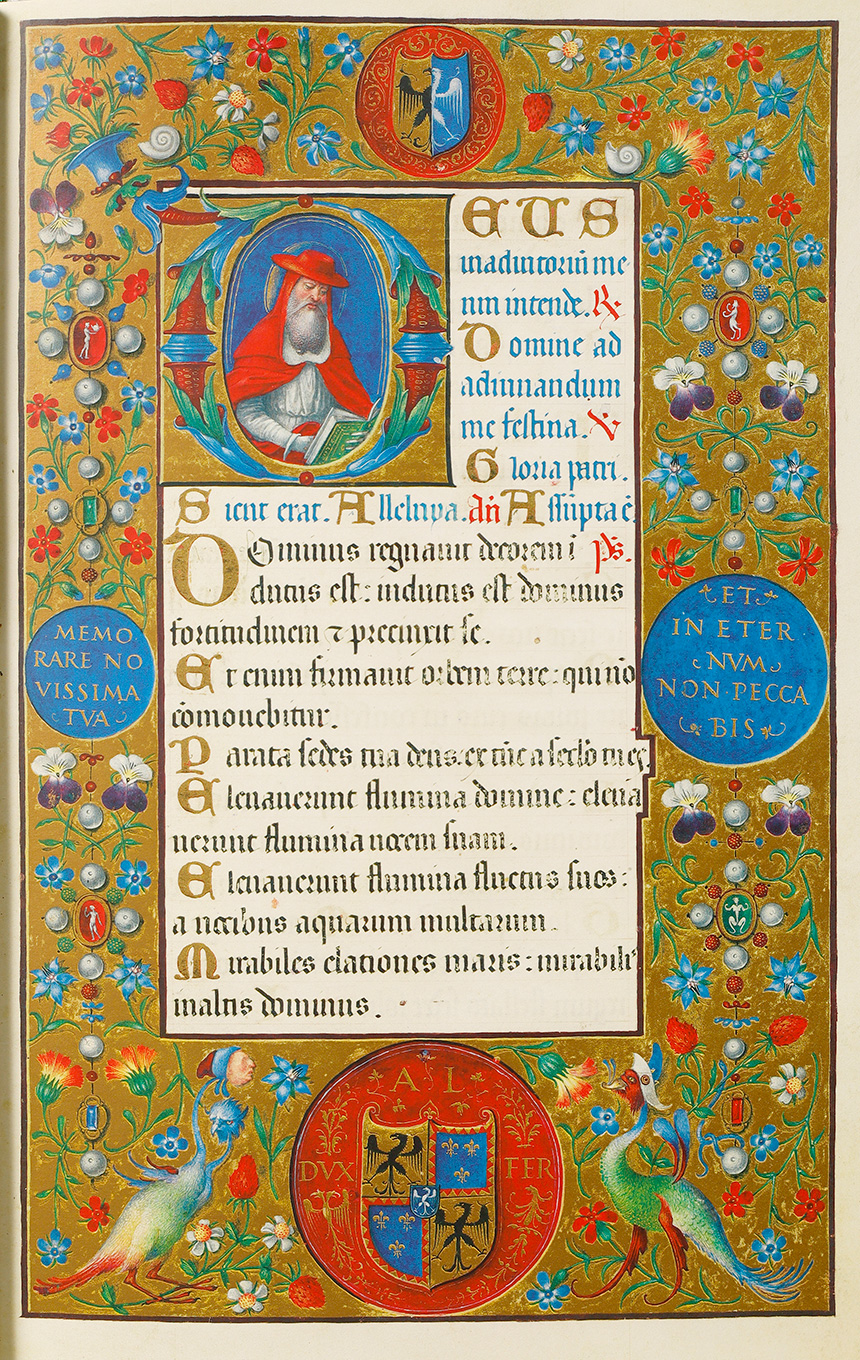 DEUS
in adiutoriū me
um intende. R
Domine ad
adiuuandum
me festina. V
Gloria patri.
Sicut erat. Alleluya. An̄ Assūpta ē.
DOminus regnauit decorem ī ps.
dutus est: indutus est dominus
fortitudinem ⁊ precinxit se.
Et enim firmauit orbem terre: qui nō
cōmouebitur.
Parata sedes tua deus. ex tūc a seclō tu es.
Eleuauerunt flumina domine: eleua
uerunt flumina uocem suam.
Eleuauerunt flumina fluctus suos:
a uocibus aquarum multarum.
Mirabiles elationes maris: mirabil'
in altis dominus.
MEMO
RARE NO
VISSIMA
TVA
ET
IN ETER
NVM
NON PECCA
BIS
AL
DVX FER